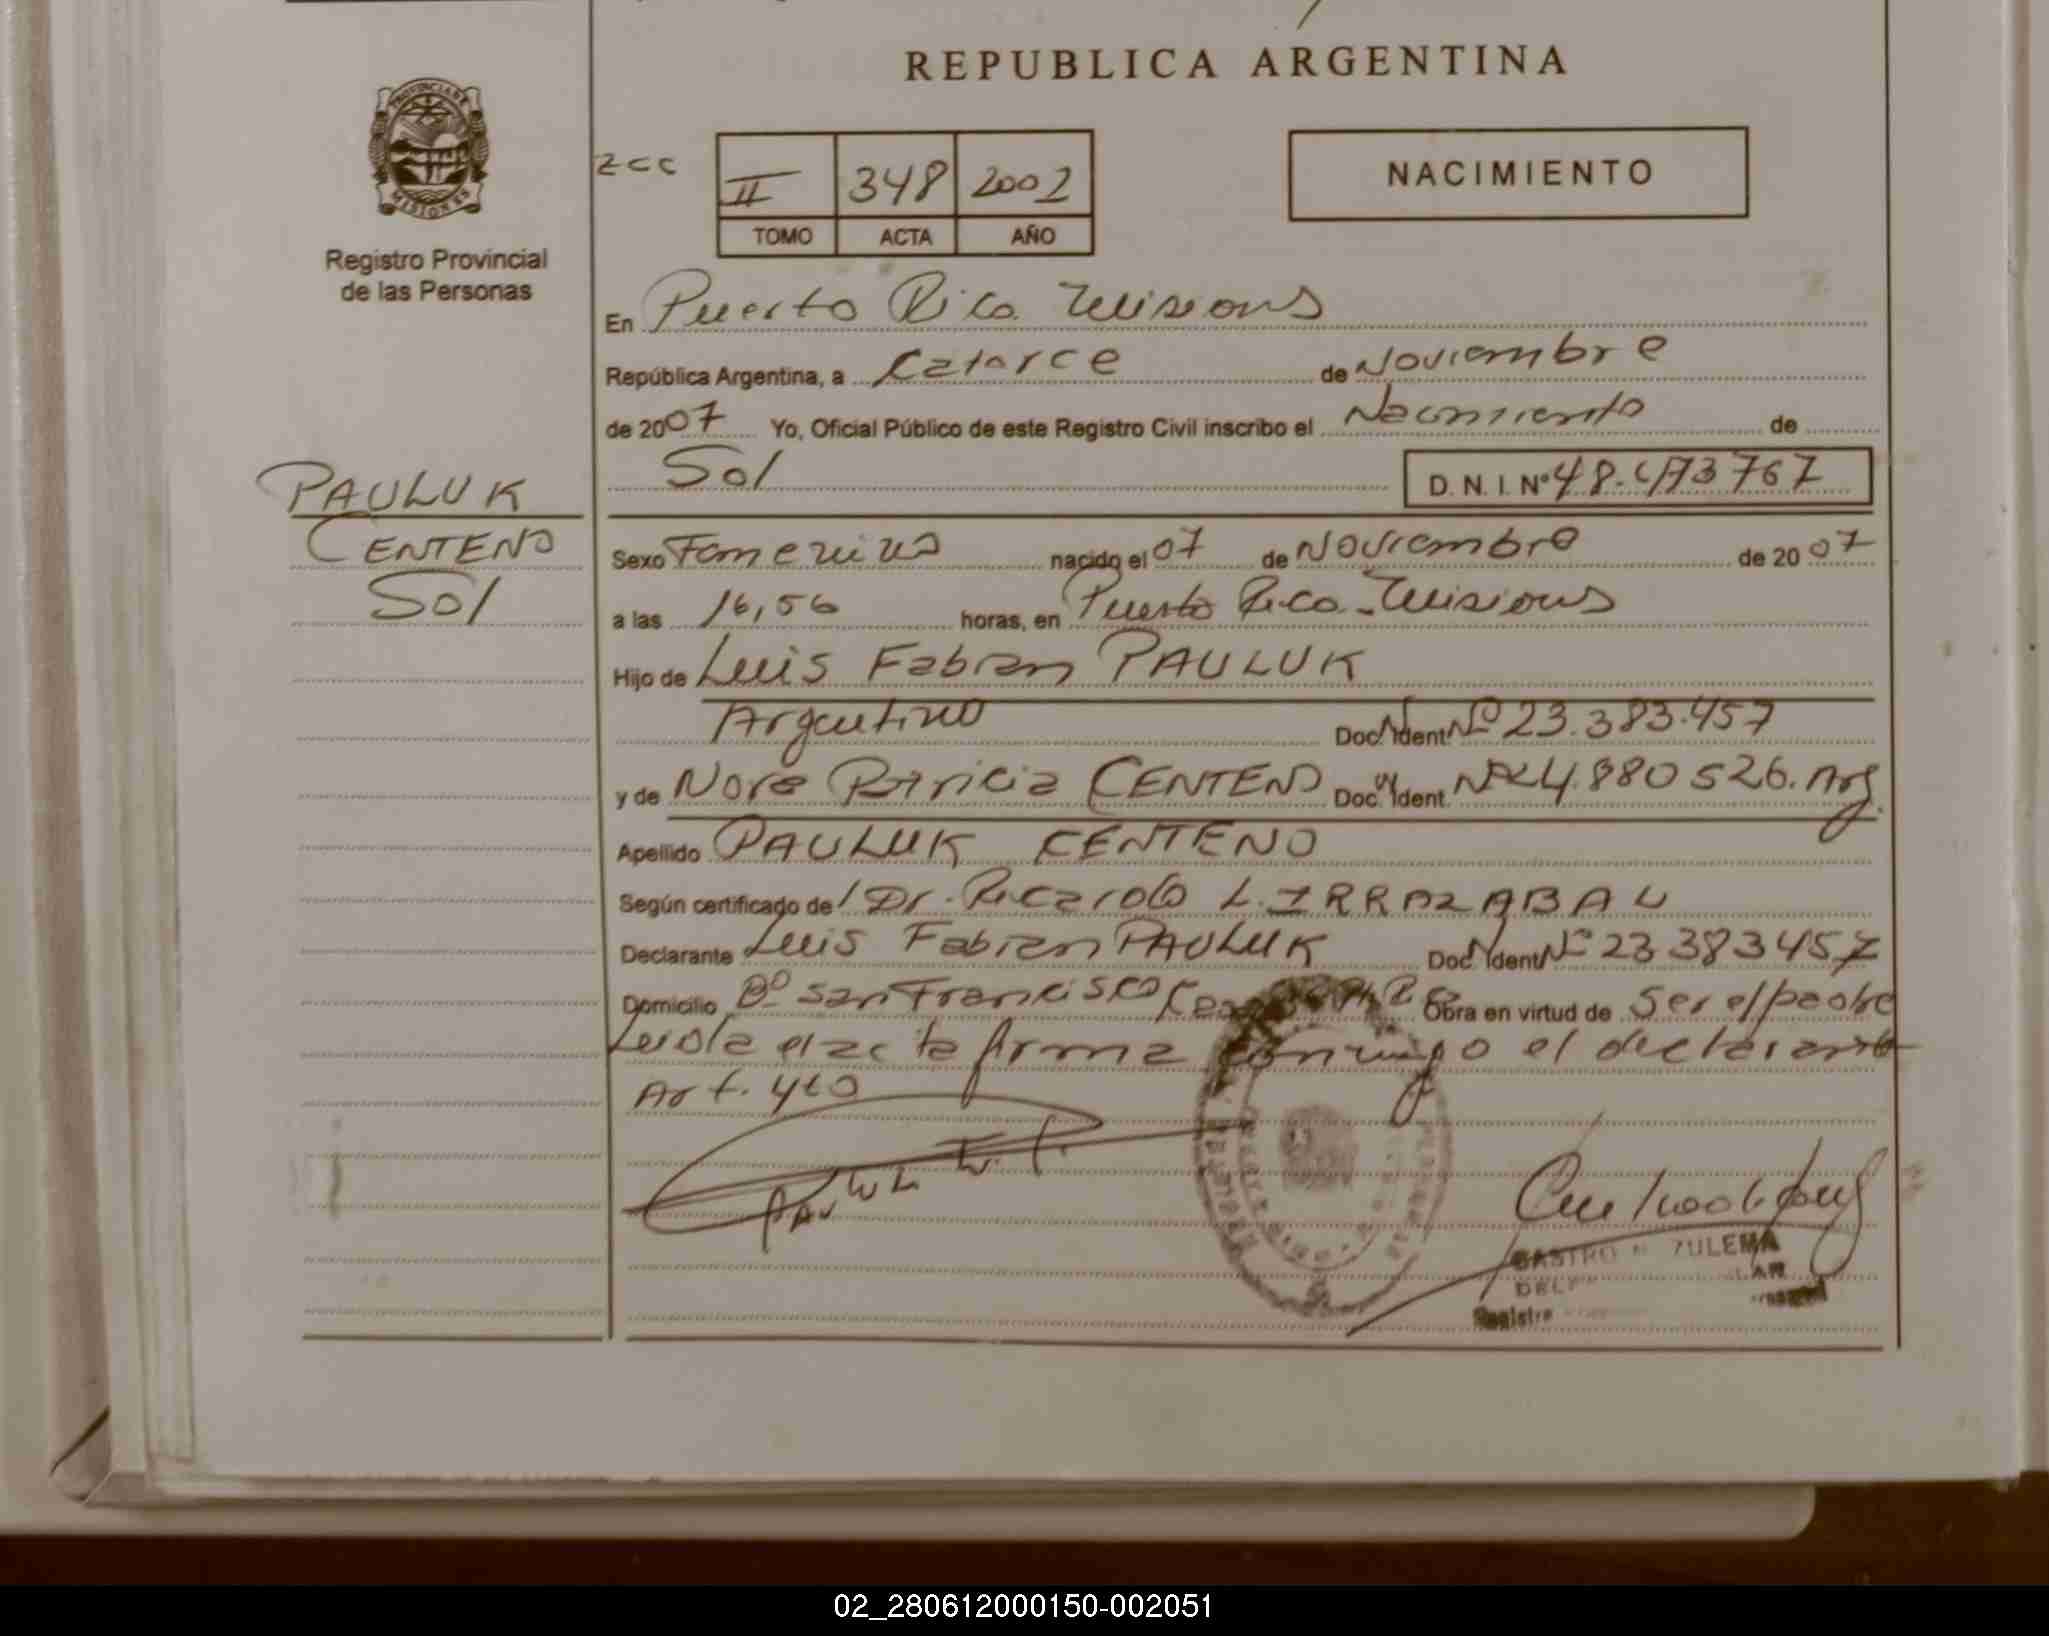 REPUBLICA ARGENTINA
PROVINCIA DE
MISIONES
Registro Provincial
de las Personas
zcc
II 348 2007
TOMO ACTA AÑO
NACIMIENTO
En Puerto Rico Misiones
República Argentina, a Catorce de Noviembre
de 2007 Yo, Oficial Público de este Registro Civil inscribo el Nacimiento de
Sol D. N. I. Nº 48.473767
PAULUK
CENTENO
Sol
Sexo Femenino nacido el 07 de Noviembre de 2007
a las 16,56 horas, en Puerto Rico - Misiones
Hijo de Luis Fabian PAULUK
Argentino Doc. Ident. Nº 23.383.457
y de Nora Patricia CENTENO Doc. Ident. Nº 24.880526. Arg.
Apellido PAULUK CENTENO
Según certificado de Dr. Ricardo L. IRRAZABAL
Declarante Luis Fabian PAULUK Doc. Ident. Nº 23383457
Domicilio Bº San Francisco Obra en virtud de Ser el padre
Leida el acta firma conmigo el declarante
Art. 460
CASTRO ZULEMA
Registro
02_280612000150-002051